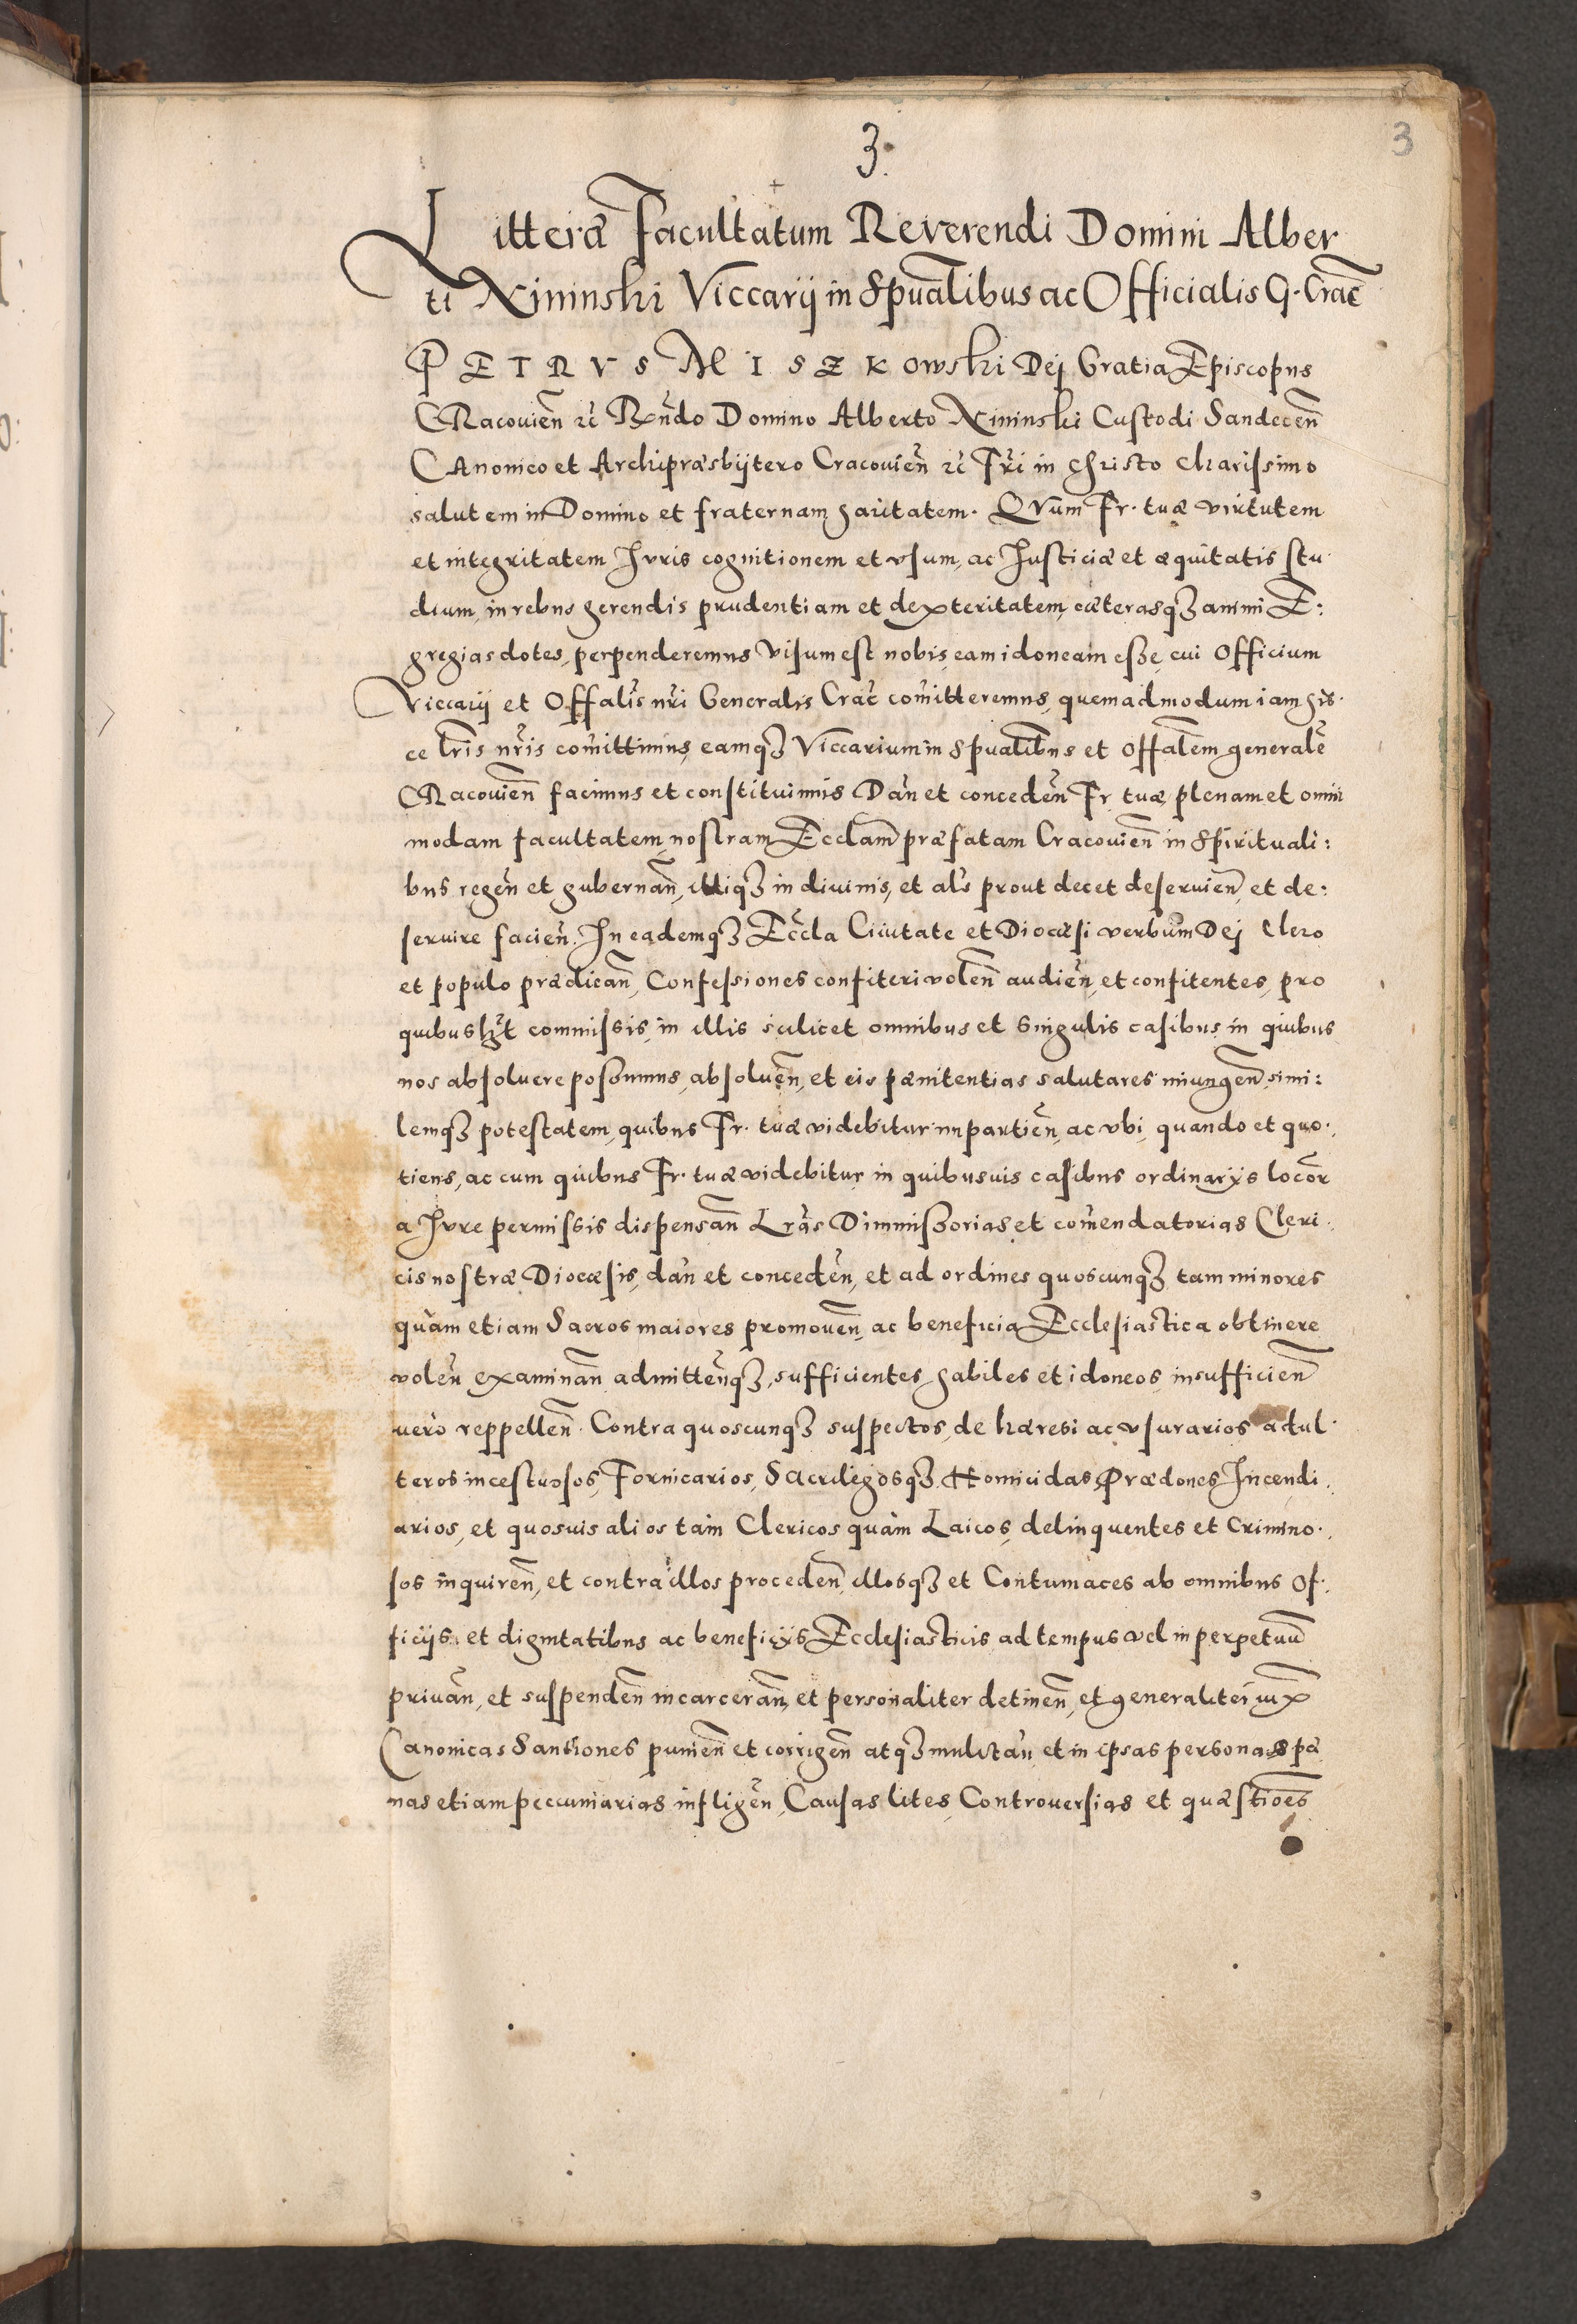 3.
3
Litteræ Facultatum Reverendi Domini Alber
ti Xininski Viccarij in Sp̃ualibus ac Officialis G. Crac̃
PETRVS MISZKowski Dej Gratia Episcopus
CRacouien̄ ꝛc̃ Rn̄do Domino Alberto Xininski Custodi Sandecen̄
CAnonico et Archipræsbÿtero Cracouien̄ ꝛc̃ Fr̃i in Christo charissimo
salutem in Domino et fraternam haritatem. QVum Fr. tuæ virtutem
et integritatem Jvris cognitionem et vsum, ac Justiciæ et æquitatis stu
dium, in rebus gerendis prudentiam et dexteritatem, cæterasqꝫ animi E:
gregias dotes, perpenderemus visum est nobis, eam idoneam esse, cui Officium
Viccarij et Offalis nr̃i Generalis Crac̃ com̃itteremus, quemadmodum iam his
ce lr̃is nr̃is com̃ittimus, eamqꝫ Viccarium in Sp̃ualibus et Offalem generalẽ
CRacouien̄ facimus et constituimus Dan̄ et conceden̄ Fr. tuæ, plenam et omni
modam facultatem, nostram Eccl̃am præfatam Cracouien̄ in Spirituali:
bus regen̄ et gubernan̄, illiqꝫ in diuinis, et al̃s prout decet deseruien̄, et de:
seruire facien̄. In eademqꝫ Eccl̃a Ciuitate et Diocæsi verbum Dej Clero
et populo prædican̄, Confessiones confiteri volen̄ audien̄, et confitentes, pro
quibus lꝫt commissis, in illis scilicet omnibus et singulis casibus, in quibus
nos absoluere possumus, absoluen̄, et eis pænitentias salutares iniungen̄ simi:
lemqꝫ potestatem, quibus Fr. tuæ videbitur impartien̄, ac vbi, quando et quo.
tiens, ac cum quibus Fr. tuæ videbitur, in quibusuis casibus ordinarijs locor̃
a Jvre permissis dispensan̄ Lr̃as Dimissorias et com̃endatorias Cleri.
cis nostræ Diocæsis, dan̄ et conceden̄, et ad ordines quoscunqꝫ tam minores
quàm etiam Sacros maiores promouen̄, ac beneficia Ecclesiastica obtinere
volen̄ examinan̄ admitten̄qꝫ, sufficientes habiles et idoneos, insufficien̄
uerò reppellen̄. Contra quoscunqꝫ suspectos, de hæresi ac vsurarios adul
teros incestuosos, Fornicarios, SAcrilegosqꝫ Homicidas, Prædones Incendi.
arios, et quosuis alios tàm Clericos quàm Laicos, delinquentes et Crimino.
sos inquiren̄, et contra illos proceden̄, illosqꝫ et Contumaces ab omnibus Of.
ficijs, et dignitatibus ac beneficijs Ecclesiasticis ad tempus vel in perpetuũ
priuan̄, et suspenden̄ incarceran̄, et personaliter detinen̄, et generaliter iux̃
Canonicas Sanctiones punien̄ et corrigen̄ atqꝫ mulctan̄, et in ipsas personas pæ
nas etiam peccuniarias infligen̄, Causas lites, Controuersias et quæstiões